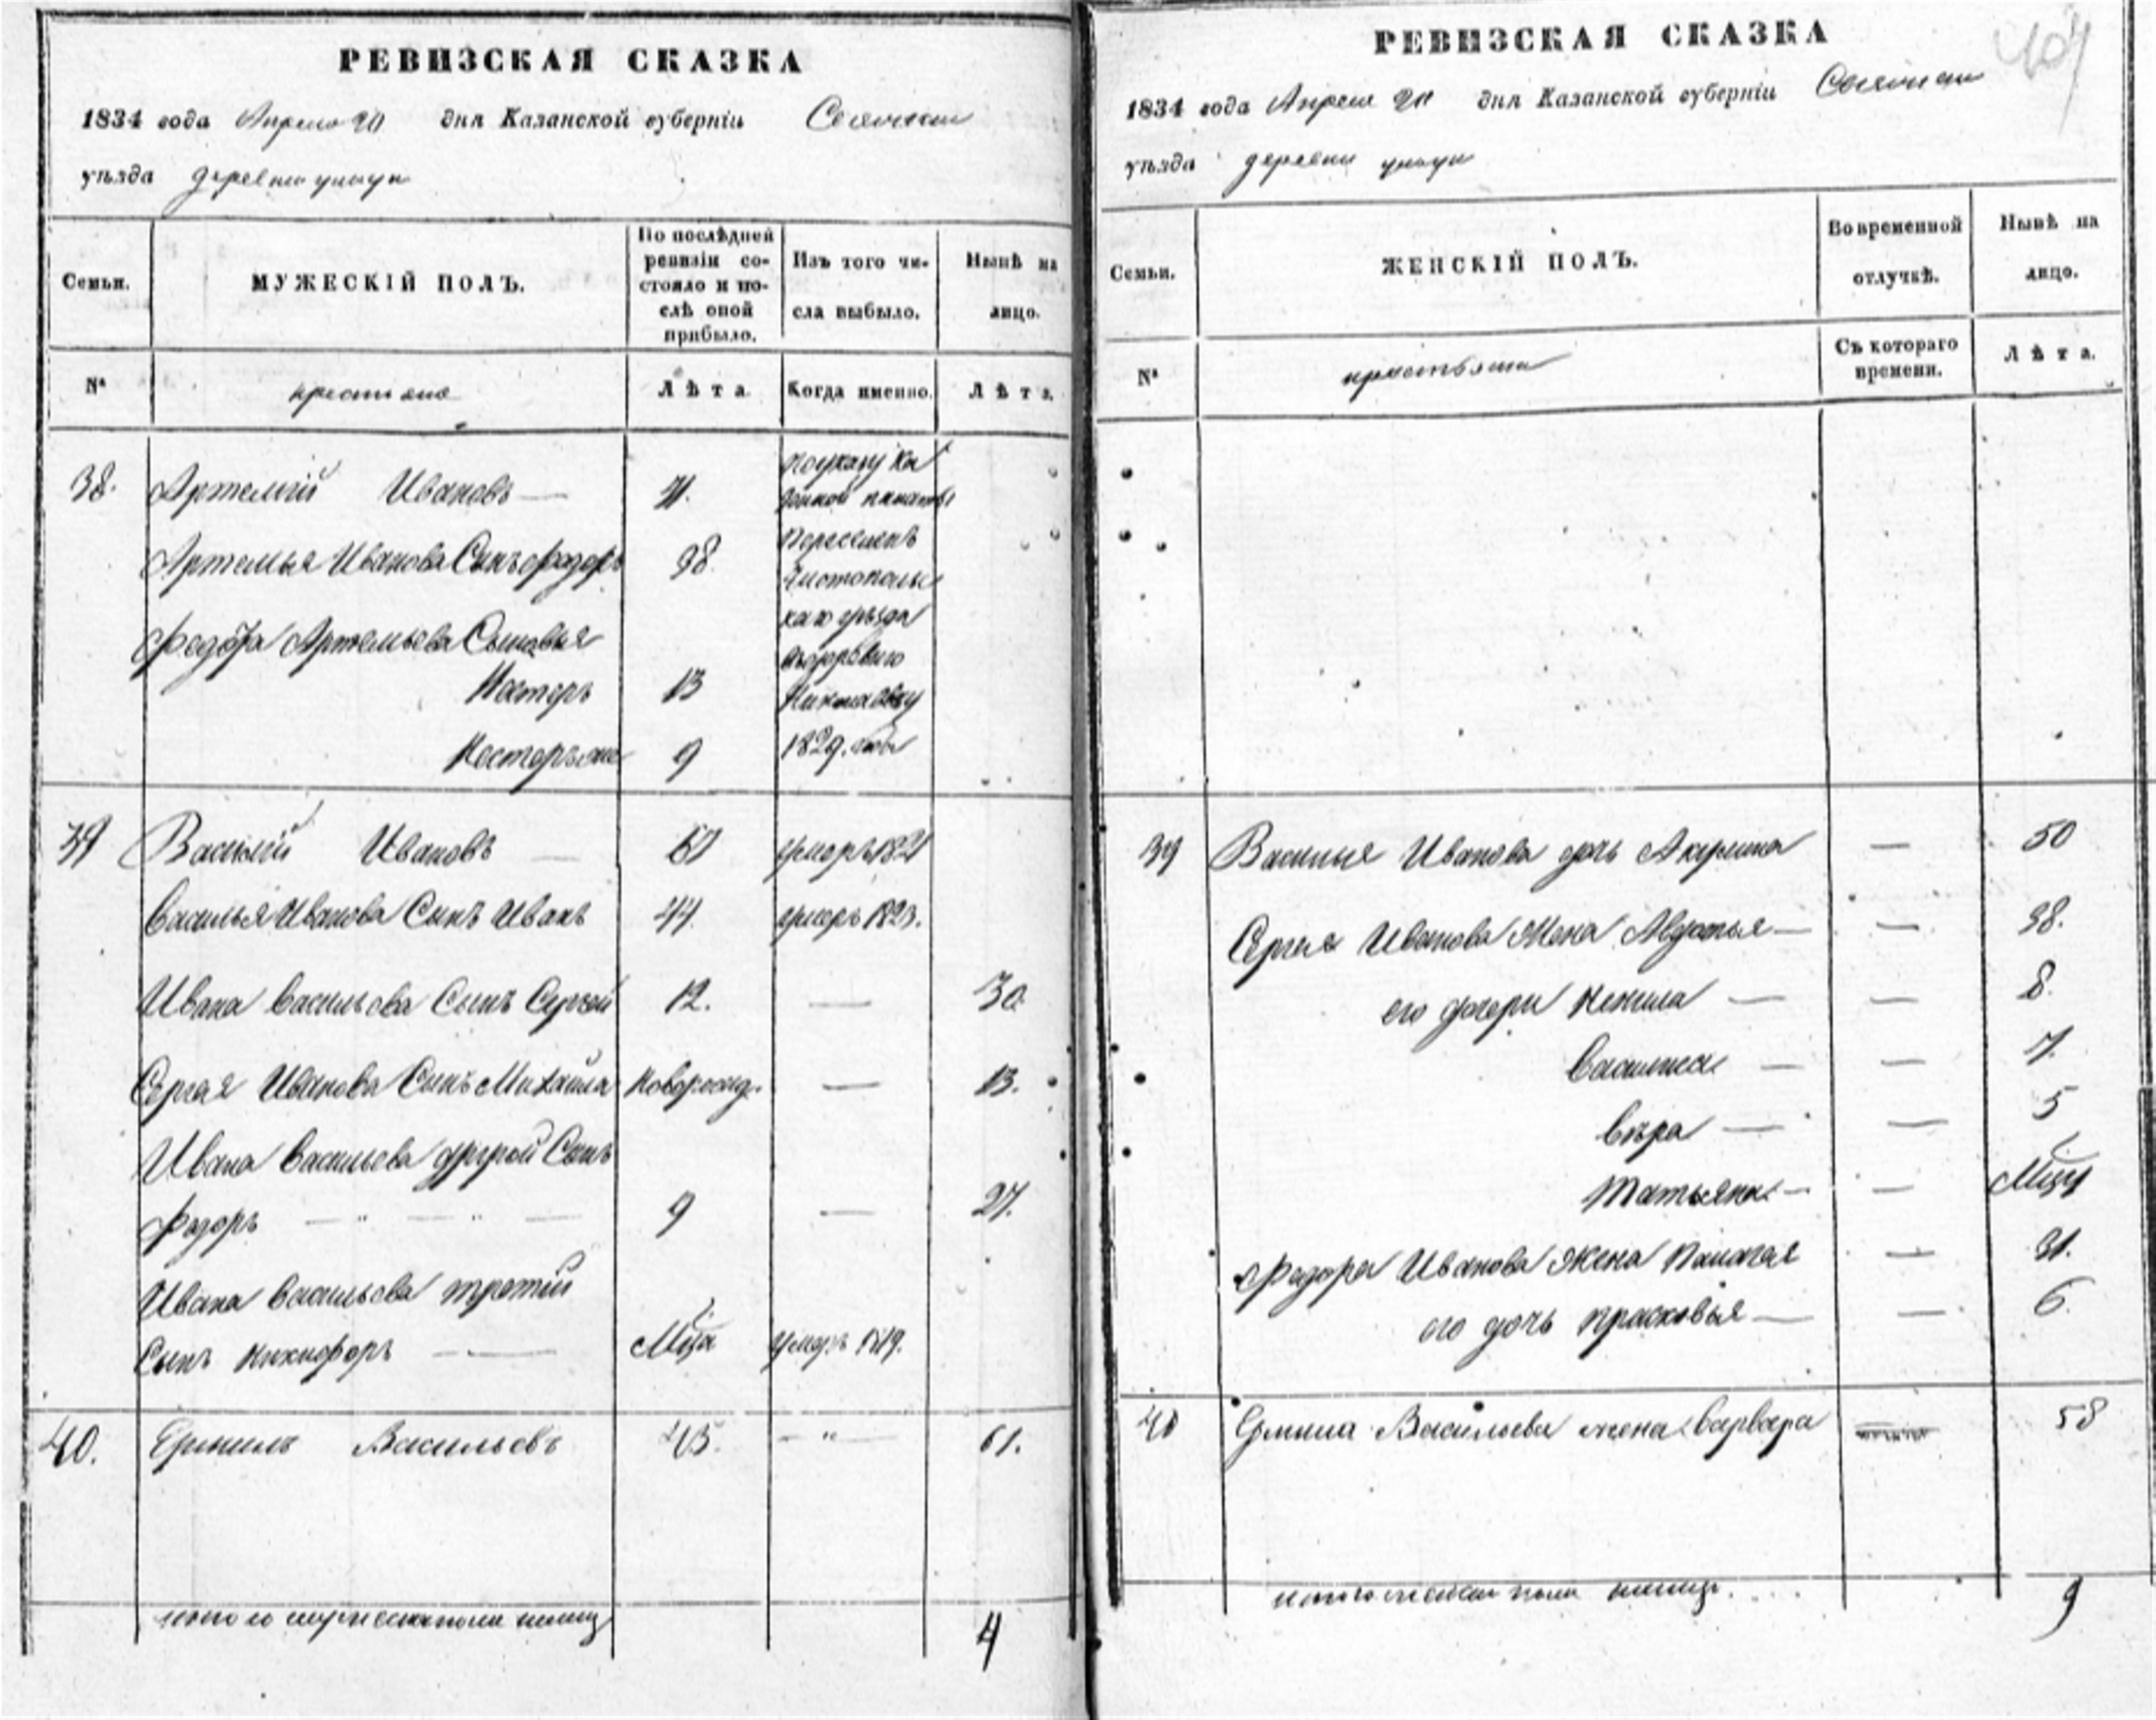 РЕВИЗСКАЯ СКАЗКА
1834 года Апреля 20 дня Казанской губерніи
уѣзда деревни
Семьи.
МУЖЕСКІЙ ПОЛЪ.
По послѣдней ревизіи состояло и послѣ оной прибыло.
Изъ того числа выбыло.
Нынѣ на лицо.
№
крестьяне
Лѣта.
Когда именно.
Лѣта.
38. Артемій Ивановъ —
по указу Ка
зенной палаты
Артемья Иванова Сынъ Федоръ 38.
переселенъ
Чистопольс
каго уѣзда
Федора Артемьева Сыновья
въ деревню
Несторъ 13
9
1829. года
39 Василій Ивановъ — умеръ 1821
Василья Иванова Сынъ Иванъ 44. умеръ 1823.
Ивана Васильева Сынъ Сергей 12. — 30.
Сергея Иванова Сынъ Михайла новорожд. — 13.
Ивана Васильева другой Сынъ
Федоръ — " — " — 9 — 27.
Ивана Васильева третій
Сынъ Никифоръ — Мца умеръ 1819.
40. Ермилъ Васильевъ 45. - " — 61.
итого мужеска пола налицо 4
РЕВИЗСКАЯ СКАЗКА
1834 года Апреля 20 дня Казанской губерніи
уѣзда деревни
Семьи.
ЖЕНСКІЙ ПОЛЪ.
Во временной отлучкѣ.
Нынѣ на лицо.
№
крестьяне
Съ котораго времени.
Лѣта.
39 Василья Иванова дочь Акулина — 50
Сергея Иванова Жена Авдотья — — 38.
его дочери Ненила — — 8.
Василиса — — 7.
Вѣра — — 5
Татьяна — —
Федора Иванова Жена Палагея — 31.
его дочь Прасковья — — 6.
40 Ермила Васильева жена Варвара 58
итого женска пола налицо. 9